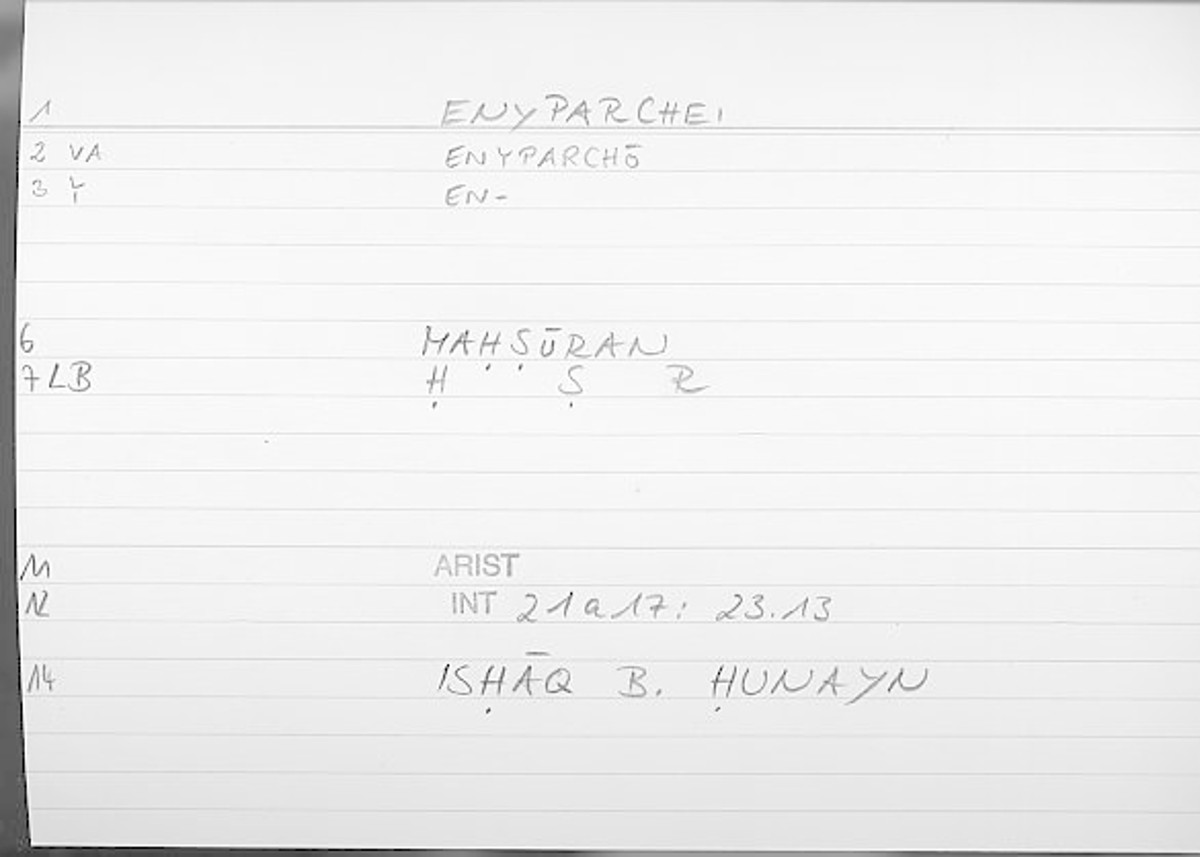 1 ENYPARCHEI
2 VA ENYPARCHŌ
3 EN-
6 MAḤṢŪRAN
7 LB Ḥ Ṣ R
11 ARIST
12 INT 21a17: 23.13
14 ISḤĀQ B. ḤUNAYN